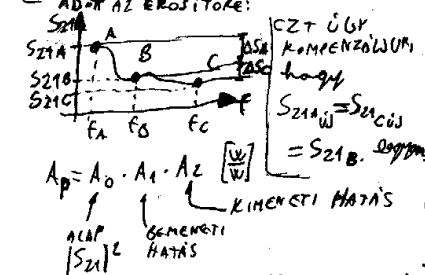 ADOTT AZ ERŐSÍTŐRE:
S21
S21A
A
B
C
ΔSA
ΔSC
S21B
S21C
fA fB fC
f
EZT ÚGY
KOMPENZÁLJUK,
hogy
S21A új = S21C új
= S21B. legyen
Ap = A0 · A1 · A2 [W/W]
KIMENETI HATÁS
ALAP
|S21|²
BEMENETI
HATÁS